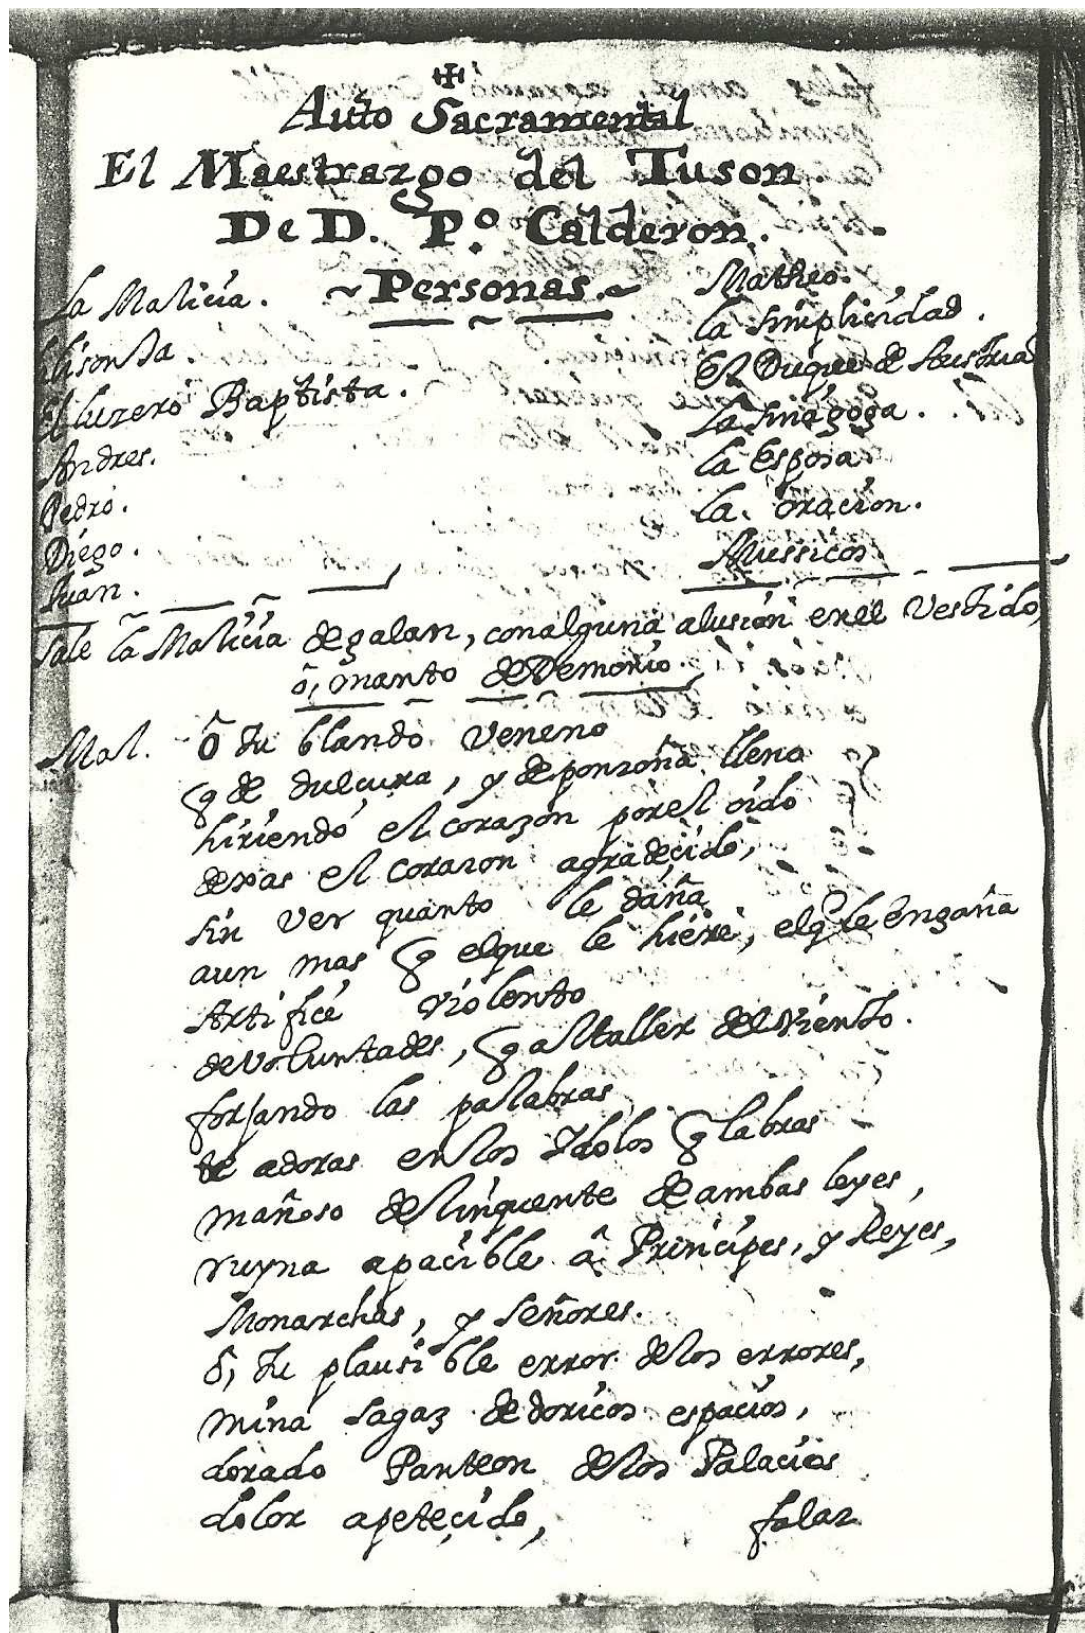 Auto Sacramental
El Maestrazgo del Tuson.
De D. P.º Calderon.
~Personas.~
La Malicia.
Lisonja.
El luzero Baptista.
Andres.
Pedro.
Diego.
Juan.
Matheo.
la simplicidad.
El Duque de Austria
La sinagoga.
la Esposa
la oracion.
Mussicos
Sale la Malicia de galan, con alguna alusion en el Vestido,
ô, manto de Demonio.
Mal. ô tu blando Veneno
q de dulçura, y de ponzoña lleno
hiriendo el corazon por el oido
dexas el corazon agradecido,
sin ver quanto le daña
aun mas q el que le hiere, el q le engaña
Artifice violento
de voluntades, q al taller del viento.
forjando las palabras
te adoras en los Ydolos q labras
mañoso delinquente de ambas leyes,
ruyna apacible â Principes, y Reyes,
Monarchas, y señores.
ô, tu plausible error de los errores,
mina sagaz de doricos espacios,
dorado Panteon de los Palacios
dolor apeteçido,
falaz